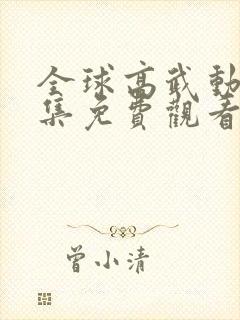 全球高武動
集免費觀看
曾小清